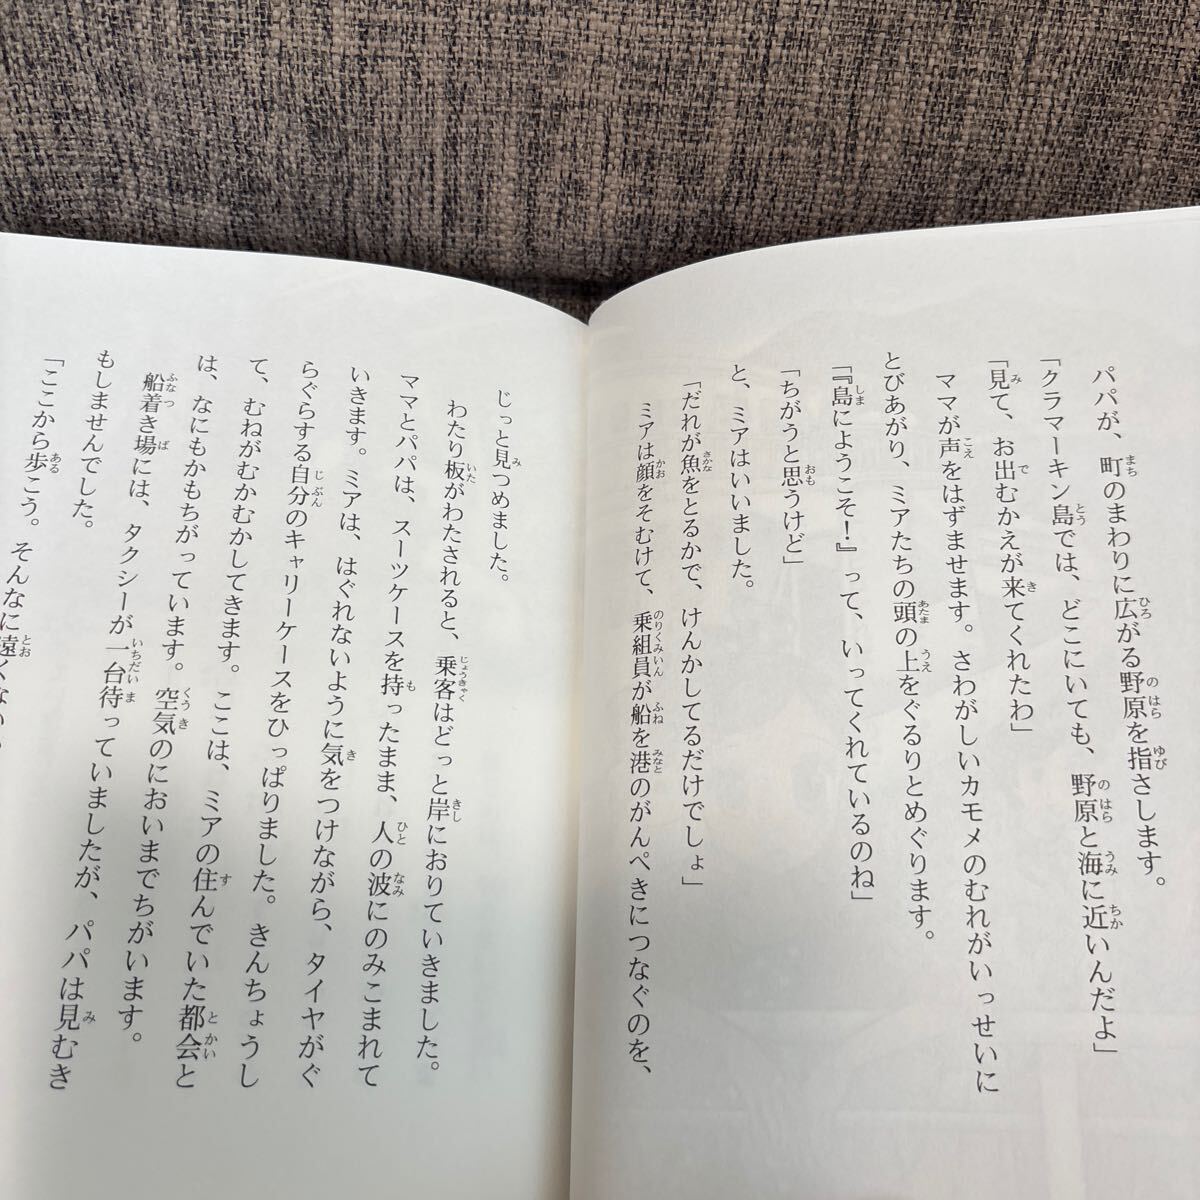 パパが、町のまわりに広がる野原を指さします。
「クラマーキン島では、どこにいても、野原と海に近いんだよ」
「見て、お出むかえが来てくれたわ」
ママが声をはずませます。さわがしいカモメのむれがいっせいに
とびあがり、ミアたちの頭の上をぐるりとめぐります。
「『島にようこそ！』って、いってくれているのね」
「ちがうと思うけど」
と、ミアはいいました。
「だれが魚をとるかで、けんかしてるだけでしょ」
ミアは顔をそむけて、乗組員が船を港のがんぺきにつなぐのを、
じっと見つめました。
わたり板がわたされると、乗客はどっと岸におりていきました。
ママとパパは、スーツケースを持ったまま、人の波にのみこまれて
いきます。ミアは、はぐれないように気をつけながら、タイヤがぐ
らぐらする自分のキャリーケースをひっぱりました。きんちょうし
て、むねがむかむかしてきます。ここは、ミアの住んでいた都会と
は、なにもかもちがっています。空気のにおいまでちがいます。
船着き場には、タクシーが一台待っていましたが、パパは見むき
もしませんでした。
「ここから歩こう。そんなに遠くない